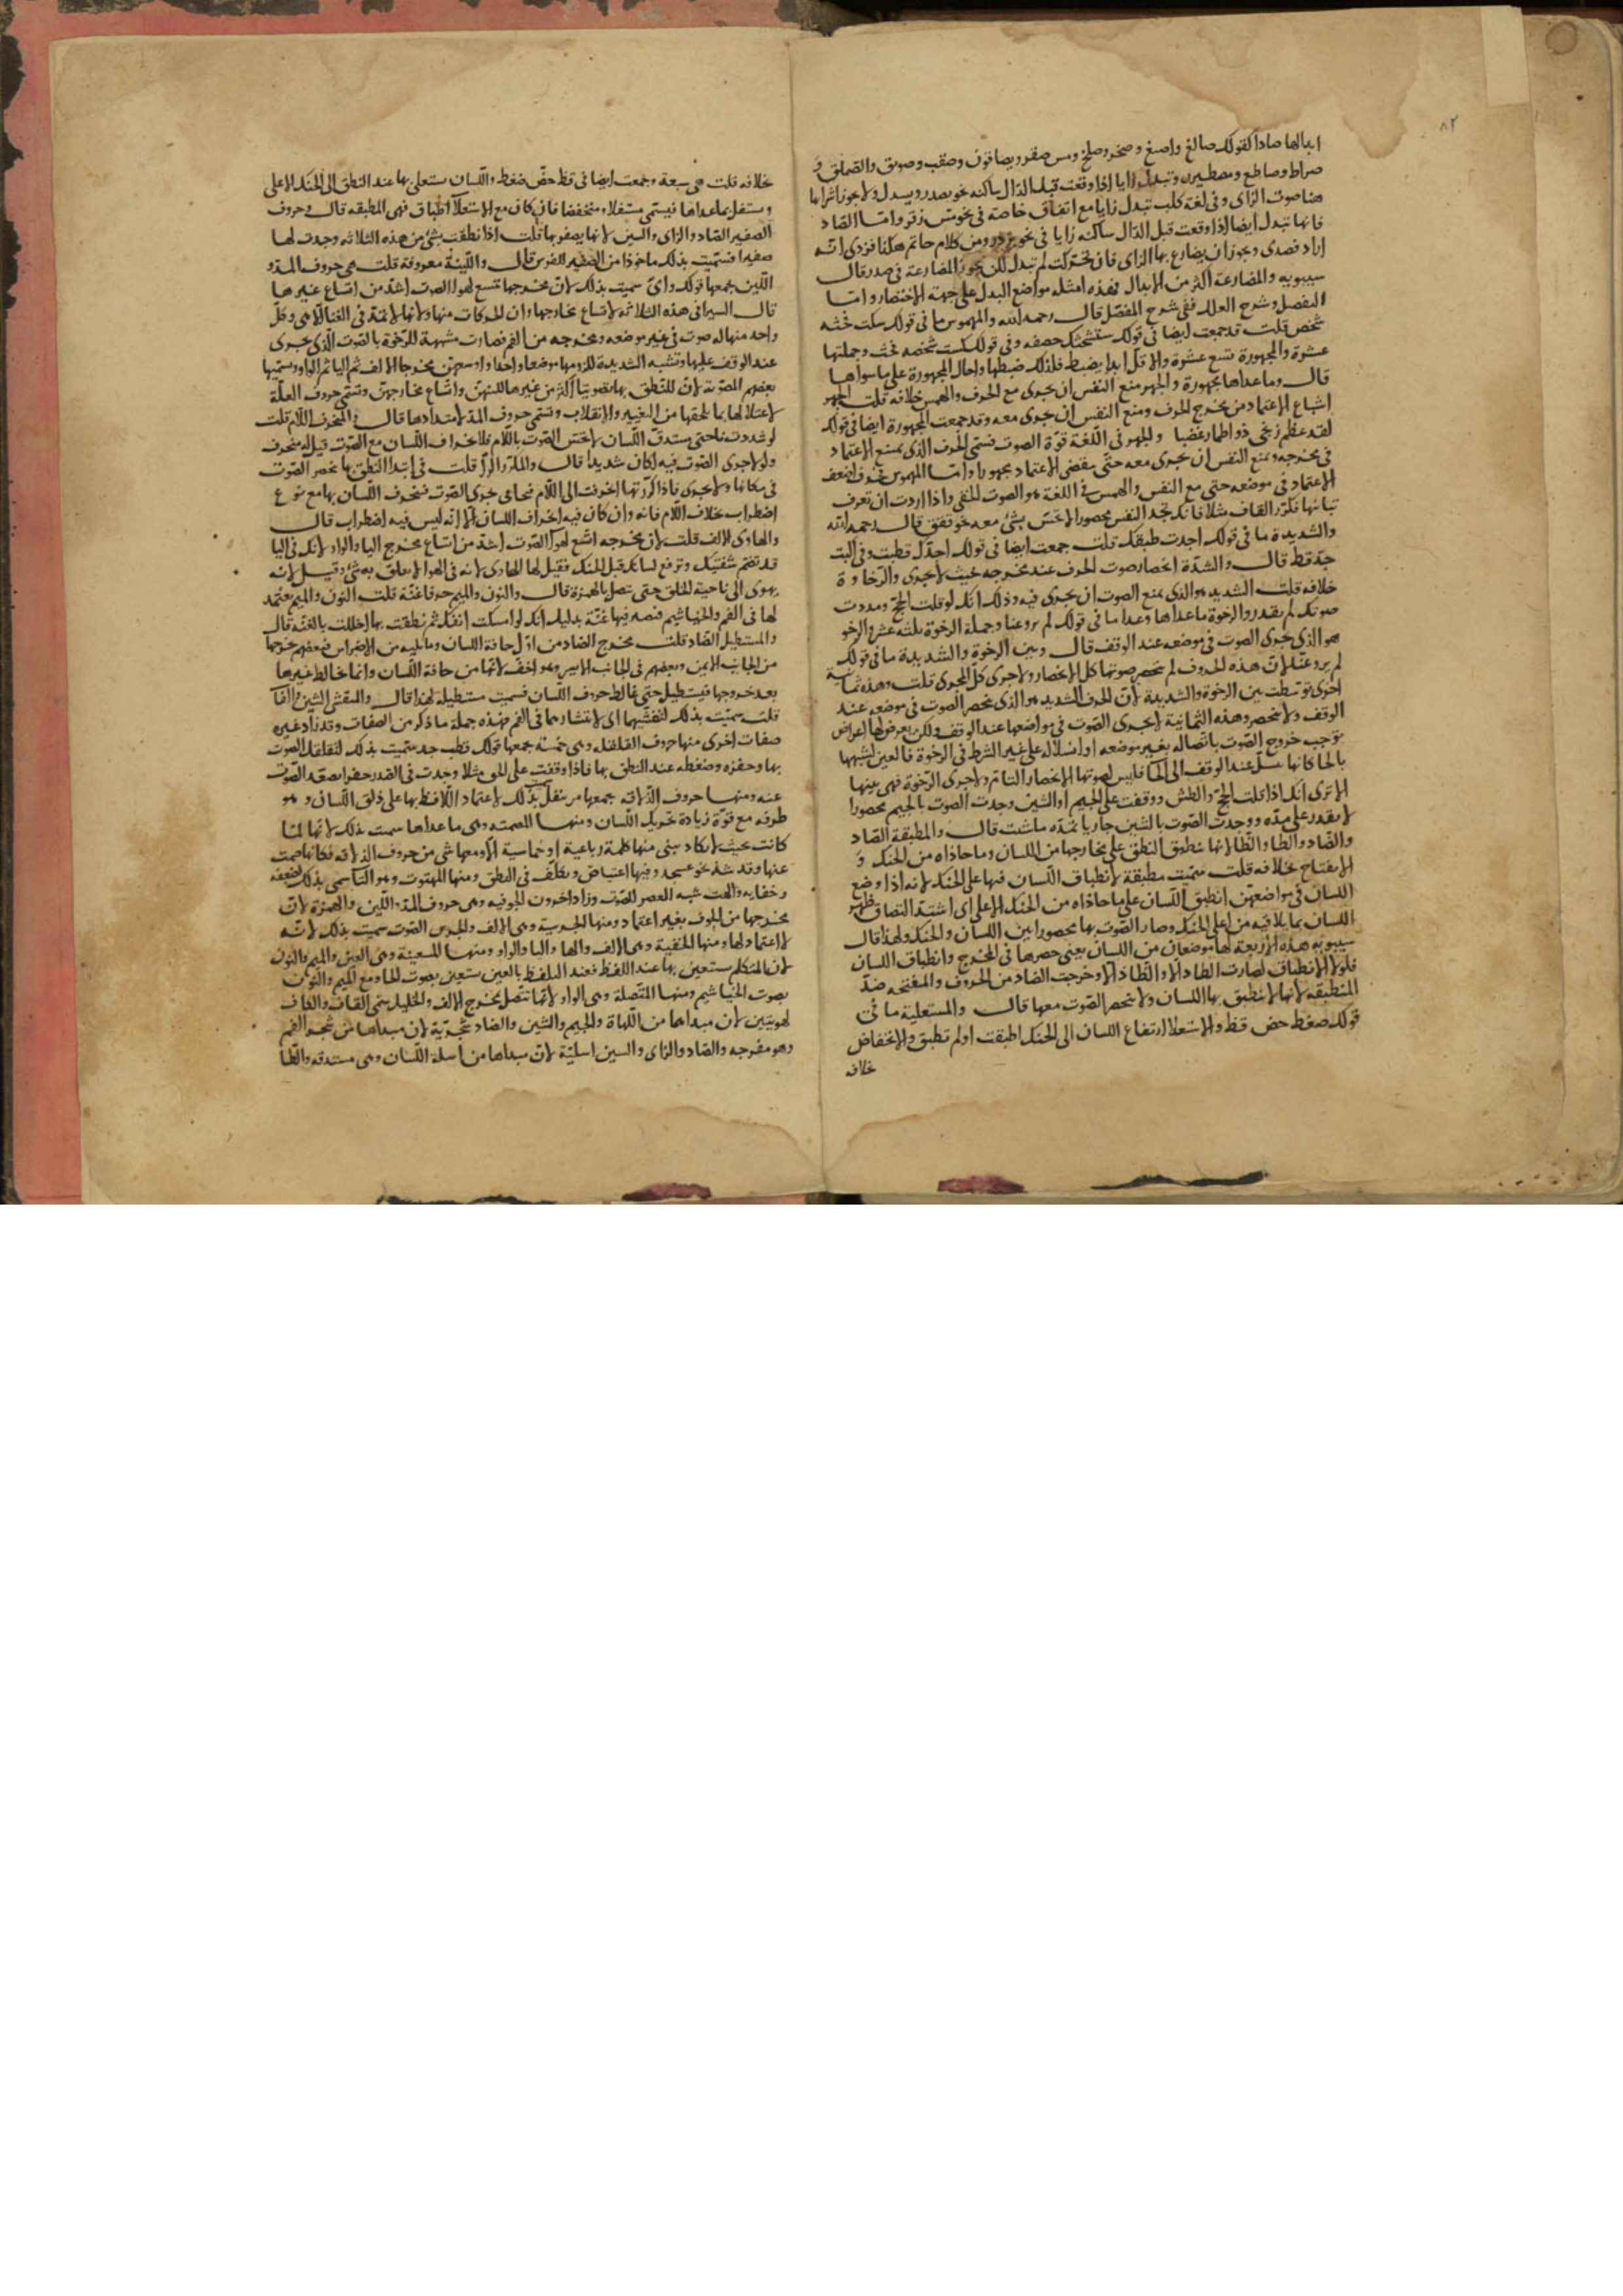 ٨٢
ابدالها صادا كقولك صالغ واصبغ وصخر وصلخ ومس صقر ويصاقون وصقب وصويق والصملق و
صراط وصاطع ومصيطر وتبدل زايا اذا وقعت قبل الدال ساكنة نحو يصدر ويسدل ولا يجوز اشرابها
هنا صوت الزاى وفى لغة كلب تبدل زايا مع القاف خاصة فى نحو مس زقر واما الصاد
فانها تبدل ايضا اذا وقعت قبل الدال ساكنة زايا فى نحو يزدر ومن كلام حاتم هكذا فزدى انه
اراد فصدى ويجوز ان يضارع بها الزاى فان تحركت لم تبدل لكن يجوز المضارعة فى صدر قال
سيبويه والمضارعة اكثر من الابدال فهذه امثلة مواضع البدل على جهة الاختصار واما
التفصيل وشرح العلل ففى شرح المفصل قال رحمه الله والمهموس ما فى قولك سكت فحثه
شخص قلت قد جمعت ايضا فى قولك ستشحثك خصفه وفى قولك كست شخصه فحث وجملتها
عشرة والمجهورة تسع عشرة والاقل ابدا يضبط فلذلك ضبطها واحال المجهورة على ما سواها
قال وما عداها مجهورة والجهر منع النفس ان يجرى مع الحرف والهمس خلافه قلت الجهر
اشباع الاعتماد من مخرج الحرف ومنع النفس ان يجرى معه وقد جمعت المجهورة ايضا فى قولك
لقد عظم زنجى ذو اطمار غضبا والجهر فى اللغة قوة الصوت فسمى الحرف الذى يمنع الاعتماد
فى مخرجه ويمنع النفس ان يجرى معه حتى ينقضى الاعتماد مجهورا واما المهموس فحرف اضعف
الاعتماد فى موضعه حتى مع النفس والهمس فى اللغة هو الصوت الخفى واذا اردت ان تعرف
تباينها فكرر القاف مثلا فانك تجد النفس محصورا لا تحس بشئ معه نحو ققق قال رحمه الله
والشديدة ما فى قولك اجدت طبقك قلت جمعت ايضا فى قولك اجدك قطبت وفى البت
جد قط قال والشدة انحصار صوت الحرف عند مخرجه بحيث لا يجرى والرخاوة
خلافه قلت الشديد هو الذى يمنع الصوت ان يجرى فيه وذلك انك لو قلت الحج ومددت
صوتك لم تقدر والرخوة ما عداها وعدا ما فى قولك لم يروعنا وجملة الرخوة ثلثة عشر والرخو
هو الذى جرى الصوت فى موضعه عند الوقف قال وبين الرخوة والشديدة ما فى قولك
لم يروعنا لان هذه الحروف لم ينحصر صوتها كل الانحصار ولا جرى كل الجرى قلت وهذه ثمانية
اخرى توسطت بين الرخوة والشديدة لان الحرف الشديد هو الذى ينحصر الصوت فى موضعه عند
الوقف ولا ينحصر وهذه الثمانية لا يجرى الصوت فى مواضعها عند الوقف ولكن يعرض لها اعراض
توجب خروج الصوت باتصاله بغير موضعه او انسلاله على غير الشرط فى الرخوة فالعين لشبهها
بالحا كانها تنسل عند الوقف الى الحا فليس لصوتها الانحصار التام ولا جرى الرخوة فهى بينها
الا ترى انك اذا قلت الحج والطش ووقفت على الجيم او الشين وجدت الصوت بالجيم محصورا
لا تقدر على مده ووجدت الصوت بالشين جاريا تمده ما شئت قال والمطبقة الصاد
والضاد والطا والظا لانها ينطبق النطق على مخارجها من اللسان وما حاذاه من الحنك و
الانفتاح بخلافه قلت سميت مطبقة لانطباق اللسان فيها على الحنك لانه اذا وضع
اللسان فى مواضعهن انطبق اللسان على ما حاذاه من الحنك الاعلى اى اشتد التصاق ظهر
اللسان بما يلاقيه من اعلى الحنك وصار الصوت بها محصورا بين اللسان والحنك ولهذا قال
سيبويه هذه الاربعة لها موضعان من اللسان يعنى حصرها فى المخرج وانطباق اللسان
فلولا الانطباق لصارت الطا دالا والظا ذالا وخرجت الضاد من الحروف والمنفتحة ضد
المنطبقة لانها لا ينطبق بها اللسان ولا ينحصر الصوت معها قال والمستعلية ما فى
قولك ضغط حض قظ والاستعلا ارتفاع اللسان الى الحنك اطبقت او لم تطبق والانخفاض
خلافه
خلافه قلت هى سبعة وجمعت ايضا فى قظ خص ضغط واللسان يستعلى بها عند النطق الى الحنك الاعلى
ويستفل بما عداها فيسمى مستفلا ومنخفضا فان كان مع الاستعلا اطباق فهى المطبقة قال وحروف
الصفير الصاد والزاى والسين لانها يصفر بها قلت اذا نطقت بشئ من هذه الثلاثة وجدت لها
صفيرا فسميت بذلك ماخوذا من الصفير للفرس قال واللينة معروفة قلت هى حروف المد و
اللين يجمعها قولك واى سميت بذلك لان مخرجها يتسع لهوا الصوت اشد من اتساع غيرها
قال السيرافى هذه الثلاثة لاتساع مخارجها وان الحركات منها ولانها لا تمد فى الغنا الا هى وكل
واحد منها له صوت فى غير موضعه ومخرجه من الفم فصارت مشبهة للرخوة بالصوت الذى يجرى
عند الوقف عليها وتشبه الشديدة للزومها موضعها واوسعهن مخرجا الالف ثم اليا ثم الواو ويسميها
بعضهم المصوتة لان للنطق بها تصويتا اكثر من غيرها للينهن واتساع مخارجهن وتسمى حروف العلة
لاعتلالها بما يلحقها من التغيير والانقلاب وتسمى حروف المد لامتدادها قال والمنحرف اللام قلت
لو شددت ناحيتى مستدق اللسان لاحتبس الصوت باللام فلانحراف اللسان مع الصوت قيل له منحرف
ولولا جرى الصوت فيه لكان شديدا قال والمكرر الرا قلت فى ابتدا النطق بها ينحصر الصوت
فى مكانها ولا يجرى فاذا كررتها انحرفت الى اللام فتجافى جرى الصوت فتنحرف اللسان بها مع نوع
اضطراب بخلاف اللام فانه وان كان فيه انحراف اللسان الا انه ليس فيه اضطراب قال
والهاوى الالف قلت لان مخرجه اتسع لهوا الصوت اشد من اتساع مخرج اليا والواو لانك فى اليا
قد تضم شفتيك وترفع لسانك قبل الحنك فقيل لها الهاوى لانه فى الهوا لا يعلق به شئ وقيل لانه
يهوى الى ناحية الحلق حتى تتصل بالهمزة قال والنون والميم حرفا غنة قلت النون والميم يعتمد
لها فى الفم والخياشيم فتصير فيها غنة بدليل انك لو امسكت انفك ثم نطقت بها اخللت بالغنة قال
والمستطيل الضاد قلت مخرج الضاد من اول حافة اللسان وما يليه من الاضراس فبعضهم يخرجها
من الجانب الايمن وبعضهم فى الجانب الايسر وهو اخف لانها من حافة اللسان وانما تخالط غيرها
بعد خروجها فيستطيل حتى تخالط حروف اللسان فسميت مستطيلة لهذا قال والمتفشى الشين والفا
قلت سميت بذلك لتفشيها اى لانتشارها فى الفم فهذه جملة ما ذكر من الصفات وقد زاد غيره
صفات اخرى منها حروف القلقلة وهى خمسة يجمعها قولك قطب جد سميت بذلك لتقلقل الصوت
بها وحفزه وضغطه عند النطق بها فاذا وقفت على الحق مثلا وجدت فى الصدر حفزا يصعد الصوت
عنه ومنها حروف الذلاقة يجمعها مر بنفل سميت بذلك لاعتماد اللافظ بها على ذلق اللسان وهو
طرفه مع قوة زيادة تحريك اللسان ومنها المصمتة وهى ما عداها سميت بذلك لانها لما
كانت بحيث لا يكاد يبنى منها كلمة رباعية او خماسية الا ومعها شئ من حروف الذلاقة فكانها صمت
عنها وقد شذ نحو عسجد وفيها اعتياض وتكلف فى النطق ومنها المهتوت وهو التا سمى بذلك لضعفه
وخفايه والهت شبه العصر للصوت وزاد اخرون الجوفية وهى حروف المد واللين والهمزة لان
مخرجها من الجوف بغير اعتماد ومنها الجرسية وهى الالف والجرس الصوت سميت بذلك لانه
لا اعتماد لها ومنها الخفية وهى الالف والها واليا والواو ومنها المستعينة وهى العين والميم والنون
لان المتكلم يستعين بها عند اللفظ فعند التلفظ بالعين يستعين بصوت الحا ومع الميم والنون
بصوت الخياشيم ومنها المتصلة وهى الواو لانها تتصل بمخرج الالف والخليل يسمى القاف والكاف
لهويتين لان مبداها من اللهاة والجيم والشين والضاد شجرية لان مبداها من شجر الفم
وهو مفرجه والصاد والزاى والسين اسلية لان مبداها من اسلة اللسان وهى مستدقه والطا